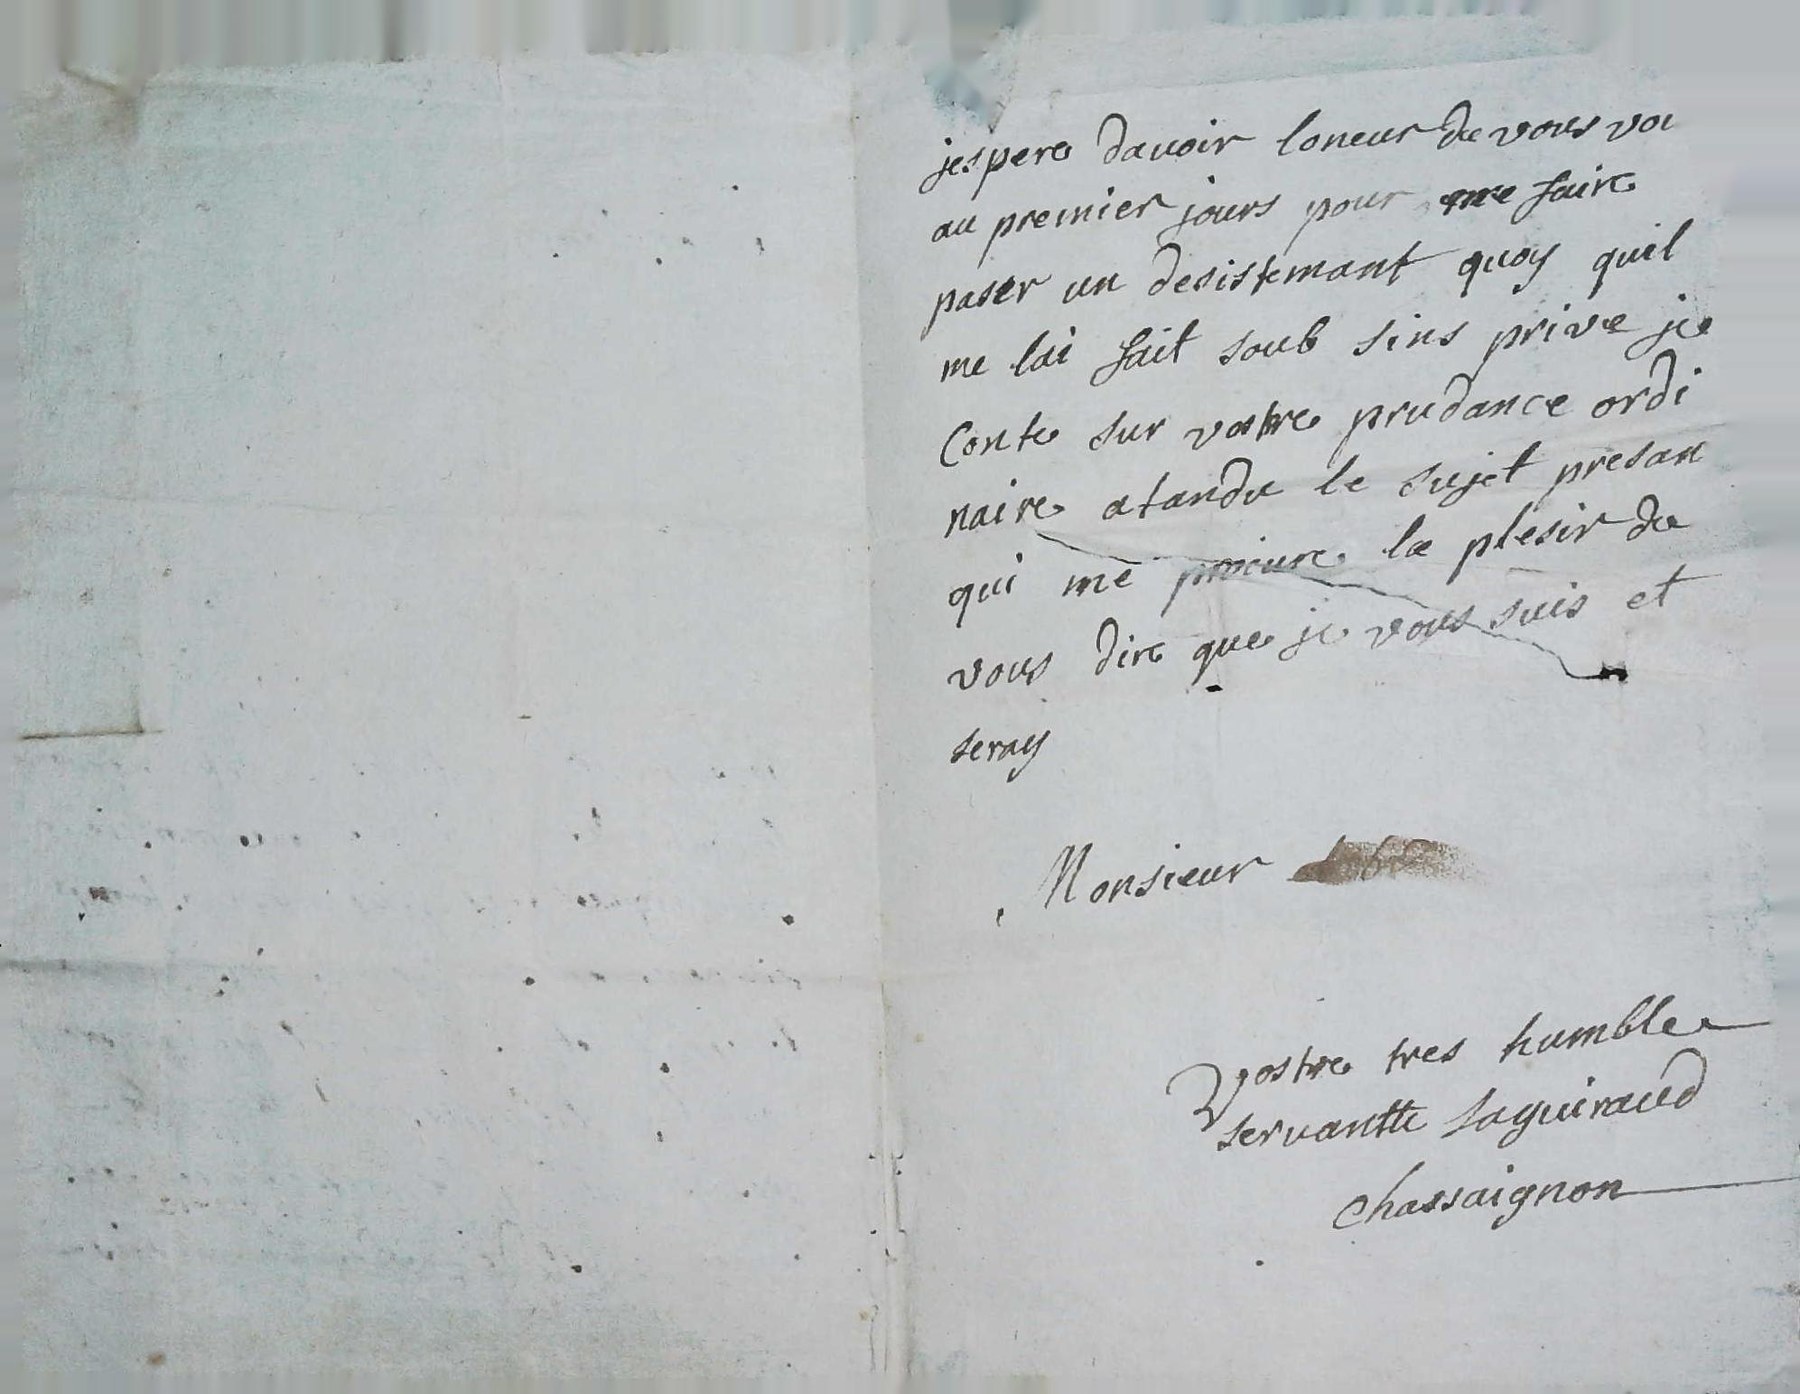 jespere davoir loneur de vous voi
au premier jours pour me faire
paser un desistemant quoy quil
me lai fait soub sins prive je
Conte sur vostre prudance ordi
naire atandu le sujet presan
qui me procure le plesir de
vous dire que je vous suis et
seray
Monsieur
Vostre tres humble
servantte Laguiraud
Chassaignon